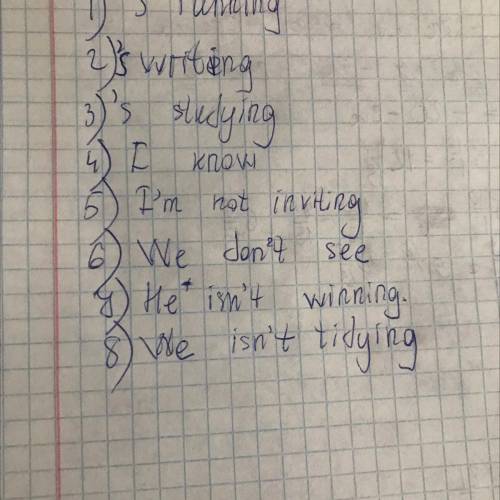 1) 's running
2) 's writing
3) 's studying
4) I know
5) I'm not inviting
6) We don't see
7) He isn't winning.
8) We isn't tidying